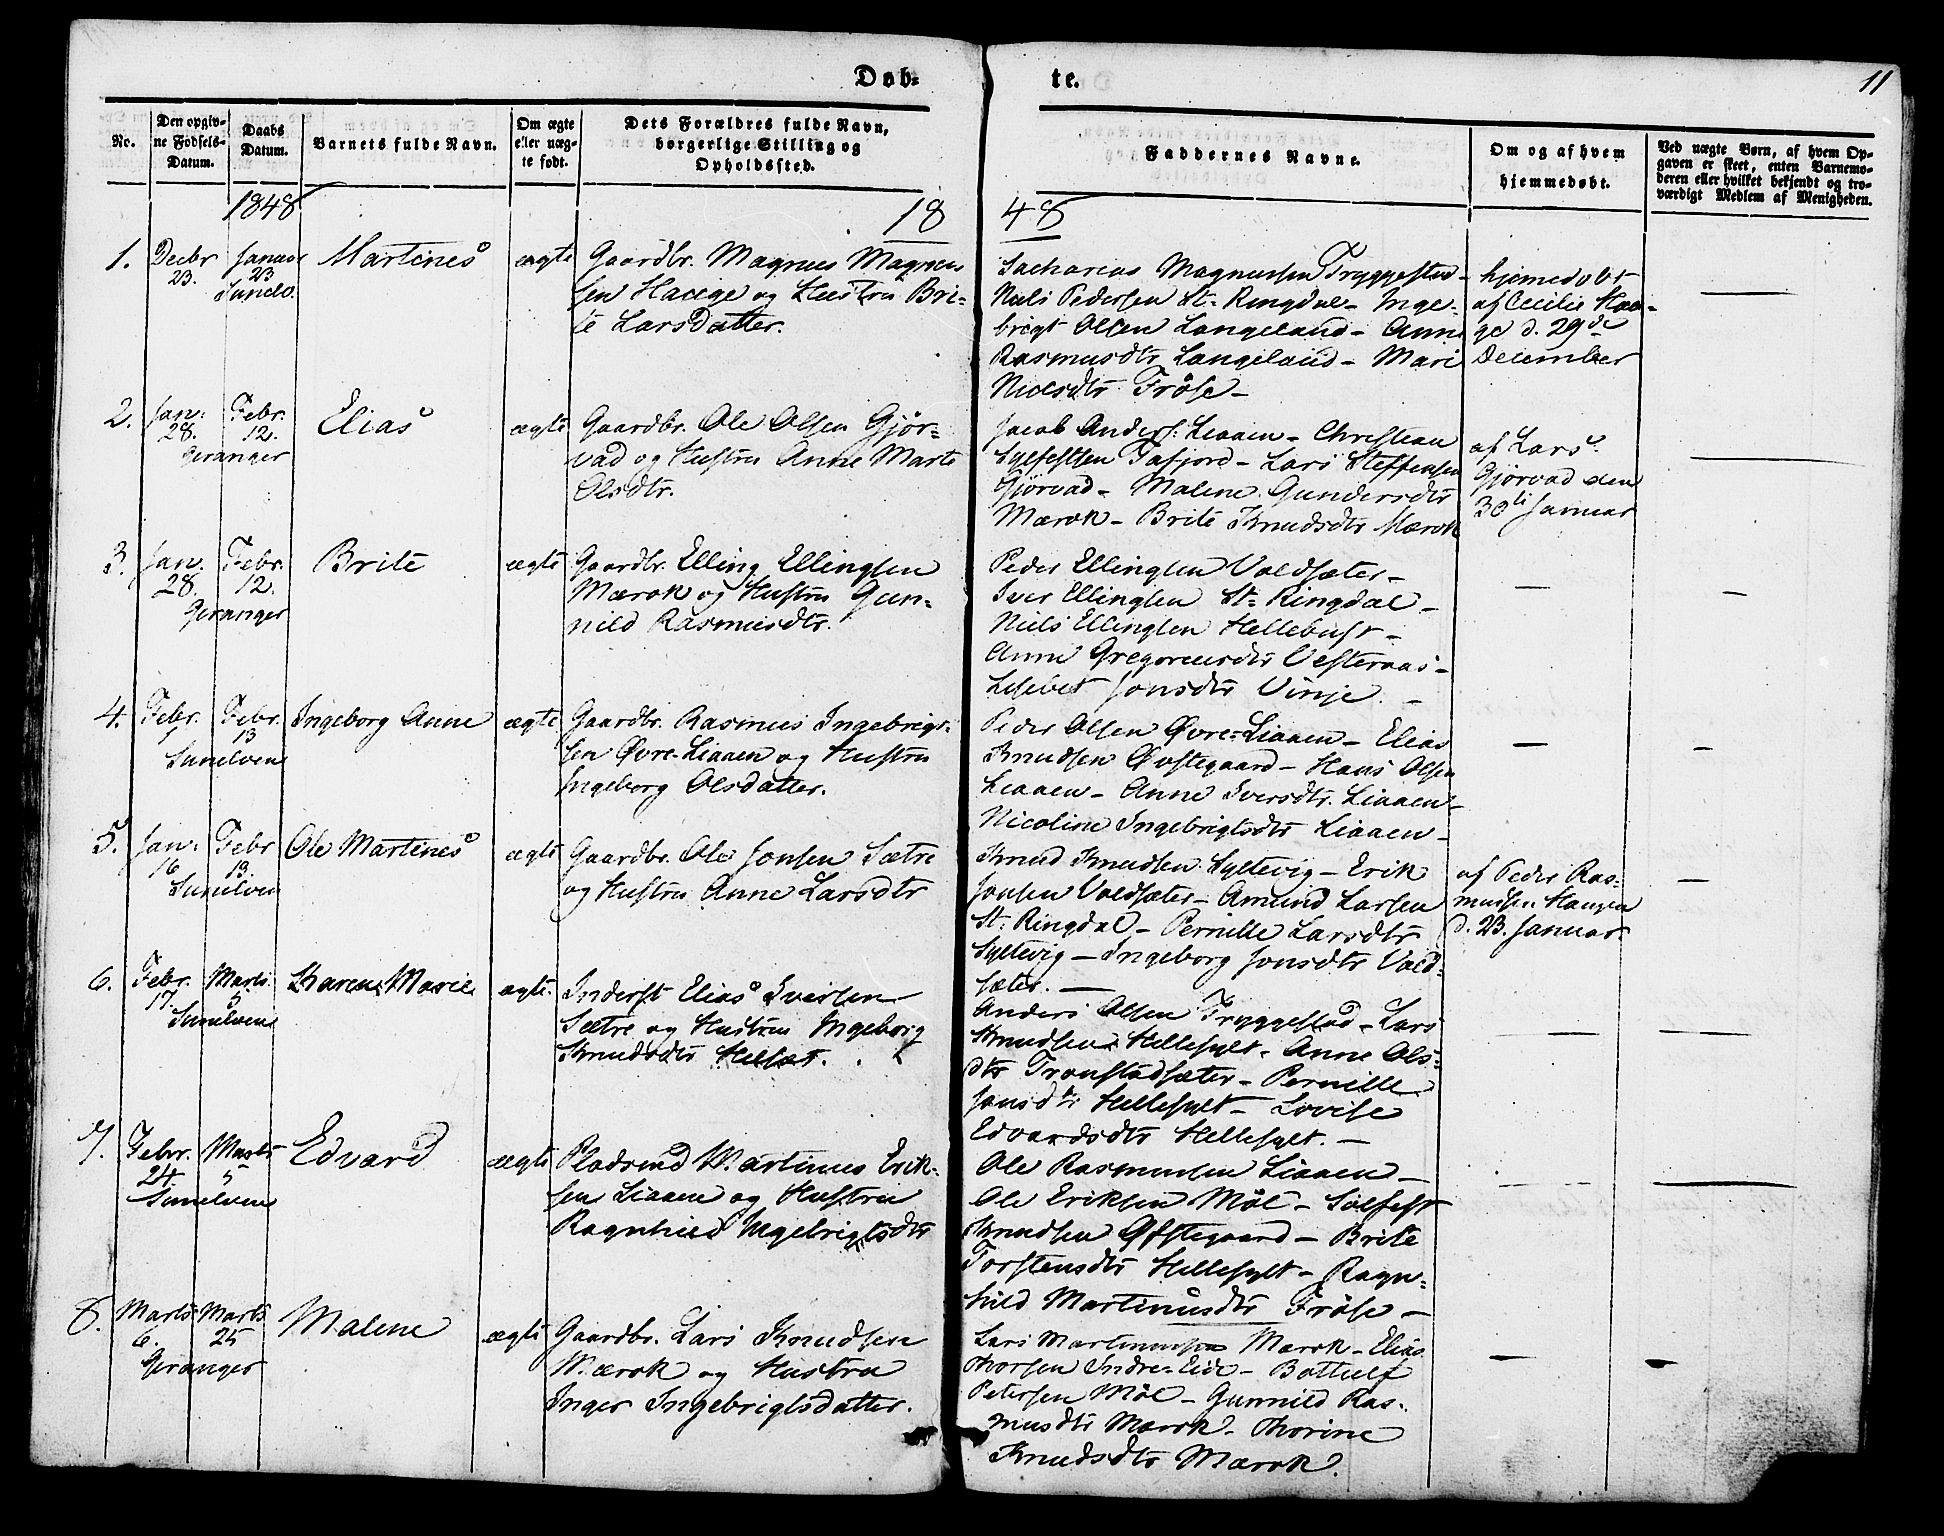 Døb-
te.
11
No.
Den opgiv-
ne Fødsels-
Datum.
Daabs
Datum.
Barnets fulde Navn.
Om ægte
eller uæg-
te født.
Dets Forældres fulde Navn,
borgerlige Stilling og
Opholdssted.
Faddernes Navne.
Om og af hvem
hjemmedøbt.
Ved uægte Børn, af hvem Op-
gaven er skeet, enten Barnemo-
deren eller hvilket bekjendt og tro-
værdigt Medlem af Menigheden.
1848
18
48
1.
Decbr
23.
Januar
23
Sunelv.
Martines
ægte
Gaardbr. Magnus Magnus
sen Hauge og Hustru Bri-
te Larsdatter.
Sacharias Magnussen Tryggestad -
Niels Pedersen St: Ringdal - Inge-
brigt Olsen Langeland - Anne
Rasmusdtr Langeland - Mari
Nielsdtr Frøse -
hjemedøbt
af Cecilie Hau-
ge d. 29de
December
2.
Jan:
28.
Febr.
12.
Geranger
Elias
ægte
Gaardbr. Ole Olsen Gjør-
vad og Hustru Anne Marte
Olsdtr.
Jacob Anders: Liaaen - Christian
Sylfestsen Tafjord - Lars Steffensen
Gjørvad - Malene Gundersdtr
Mærok - Brite Knudsdtr Mærok
af Lars
Gjørvad den
30te Januar
3.
Jan.
28.
Febr.
12.
Geranger
Brite
ægte
Gaardbr. Elling Ellingsen
Mærok og Hustru Gun-
nild Rasmusdtr.
Peder Ellingsen Voldsæter -
Iver Ellingsen St: Ringdal -
Niels Ellingsen Hellebust -
Anne Gregoriusdtr Vesteraas -
Lisebet Jonsdtr Vinje. -
4.
Febr.
1
Febr.
13
Sunelven
Ingeborg Anne
ægte
Gaardbr. Rasmus Ingebrigt-
sen Øvre-Liaaen og Hustru
Ingeborg Olsdatter.
Peder Olsen Øvre-Liaaen - Elias
Knudsen Øvstegaard - Hans Olsen
Liaaen - Anne Iversdtr. Liaaen -
Nicoline Ingebrigtsdtr Liaaen -
5.
Jan:
16
Febr
13.
Sunelven
Ole Martines
ægte
Gaardbr. Ole Jonsen Sætre
og Hustru Anne Larsdtr
Knud Knudsen Syltevig - Erik
Jonsen Voldsæter - Amund Larsen
St: Ringdal - Pernille Larsdtr
Syltevig - Ingeborg Jonsdtr Vold-
sæter. -
af Peder Ras-
mussen Haugen
d. 23. Januar.
6.
Febr.
17.
Marts.
5
Sunelven
Karen Marie
ægte.
Inderst Elias Iversen
Sætre og Hustru Ingeborg
Knudsdtr Helsæt.
Anders Olsen Tryggestad - Lars
Knudsen Hellesylt - Anne Ols-
dtr Tronstadsæter - Pernille
Jonsdtr Hellesylt - Lovise
Edvardsdtr Hellesylt. -
7.
Febr.
24.
Marts
5
Sunelven
Edvard
ægte
Pladsmd Martinus Erik-
sen Liaaen og Hustru
Ragnhild Ingebrigtsdtr
Ole Rasmussen Liaaen -
Ole Eriksen Møl - Sylfest
Knudsen Øfstegaard - Brite
Torstensdtr Hellesylt - Ragn-
hild Martinusdtr Frøse -
8.
Marts
6.
Marts
25
Geranger
Malene
ægte
Gaardbr. Lars Knudsen
Mærok og Hustru
Inger Ingebrigtsdatter.
Lars Martinussen Mærok - Elias
Thorsen Indre-Eide - Bottulf
Petersen Møl - Gunnild Ras-
musdtr Mærok - Thorine
Knudsdtr Mærok.